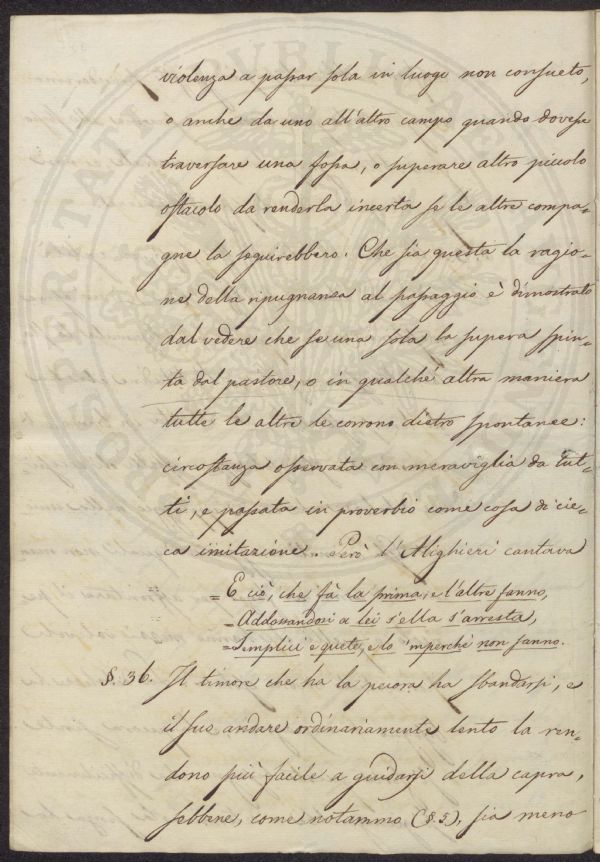 violenza a passar sola in luogo non consueto,
o anche da uno all'altro campo quando dovesse
traversare una fossa, o superare altro piccolo
ostacolo da renderla incerta se le altre compa-
gne la seguirebbero. Che sia questa la ragio-
ne della ripugnanza al passaggio è dimostrato
dal vedere che se una sola la supera spin-
ta dal pastore, o in qualche altra maniera
tutte le altre le corrono dietro spontanee:
circostanza osservata con meraviglia da tut-
ti, e passata in proverbio come cosa di cie-
ca imitazione. Però l'Alighieri cantava
=E ciò, che fà la prima, e l'altre fanno,
=Addossandosi a lei s'ella s'arresta,
=Semplici e quete, e lo 'mperchè non sanno.
§. 36. Il timore che ha la pecora ha sbandarsi, e
il suo andare ordinariamente lento la ren-
dono più facile a guidarsi della capra,
sebbene, come notammo (§.5), sia meno